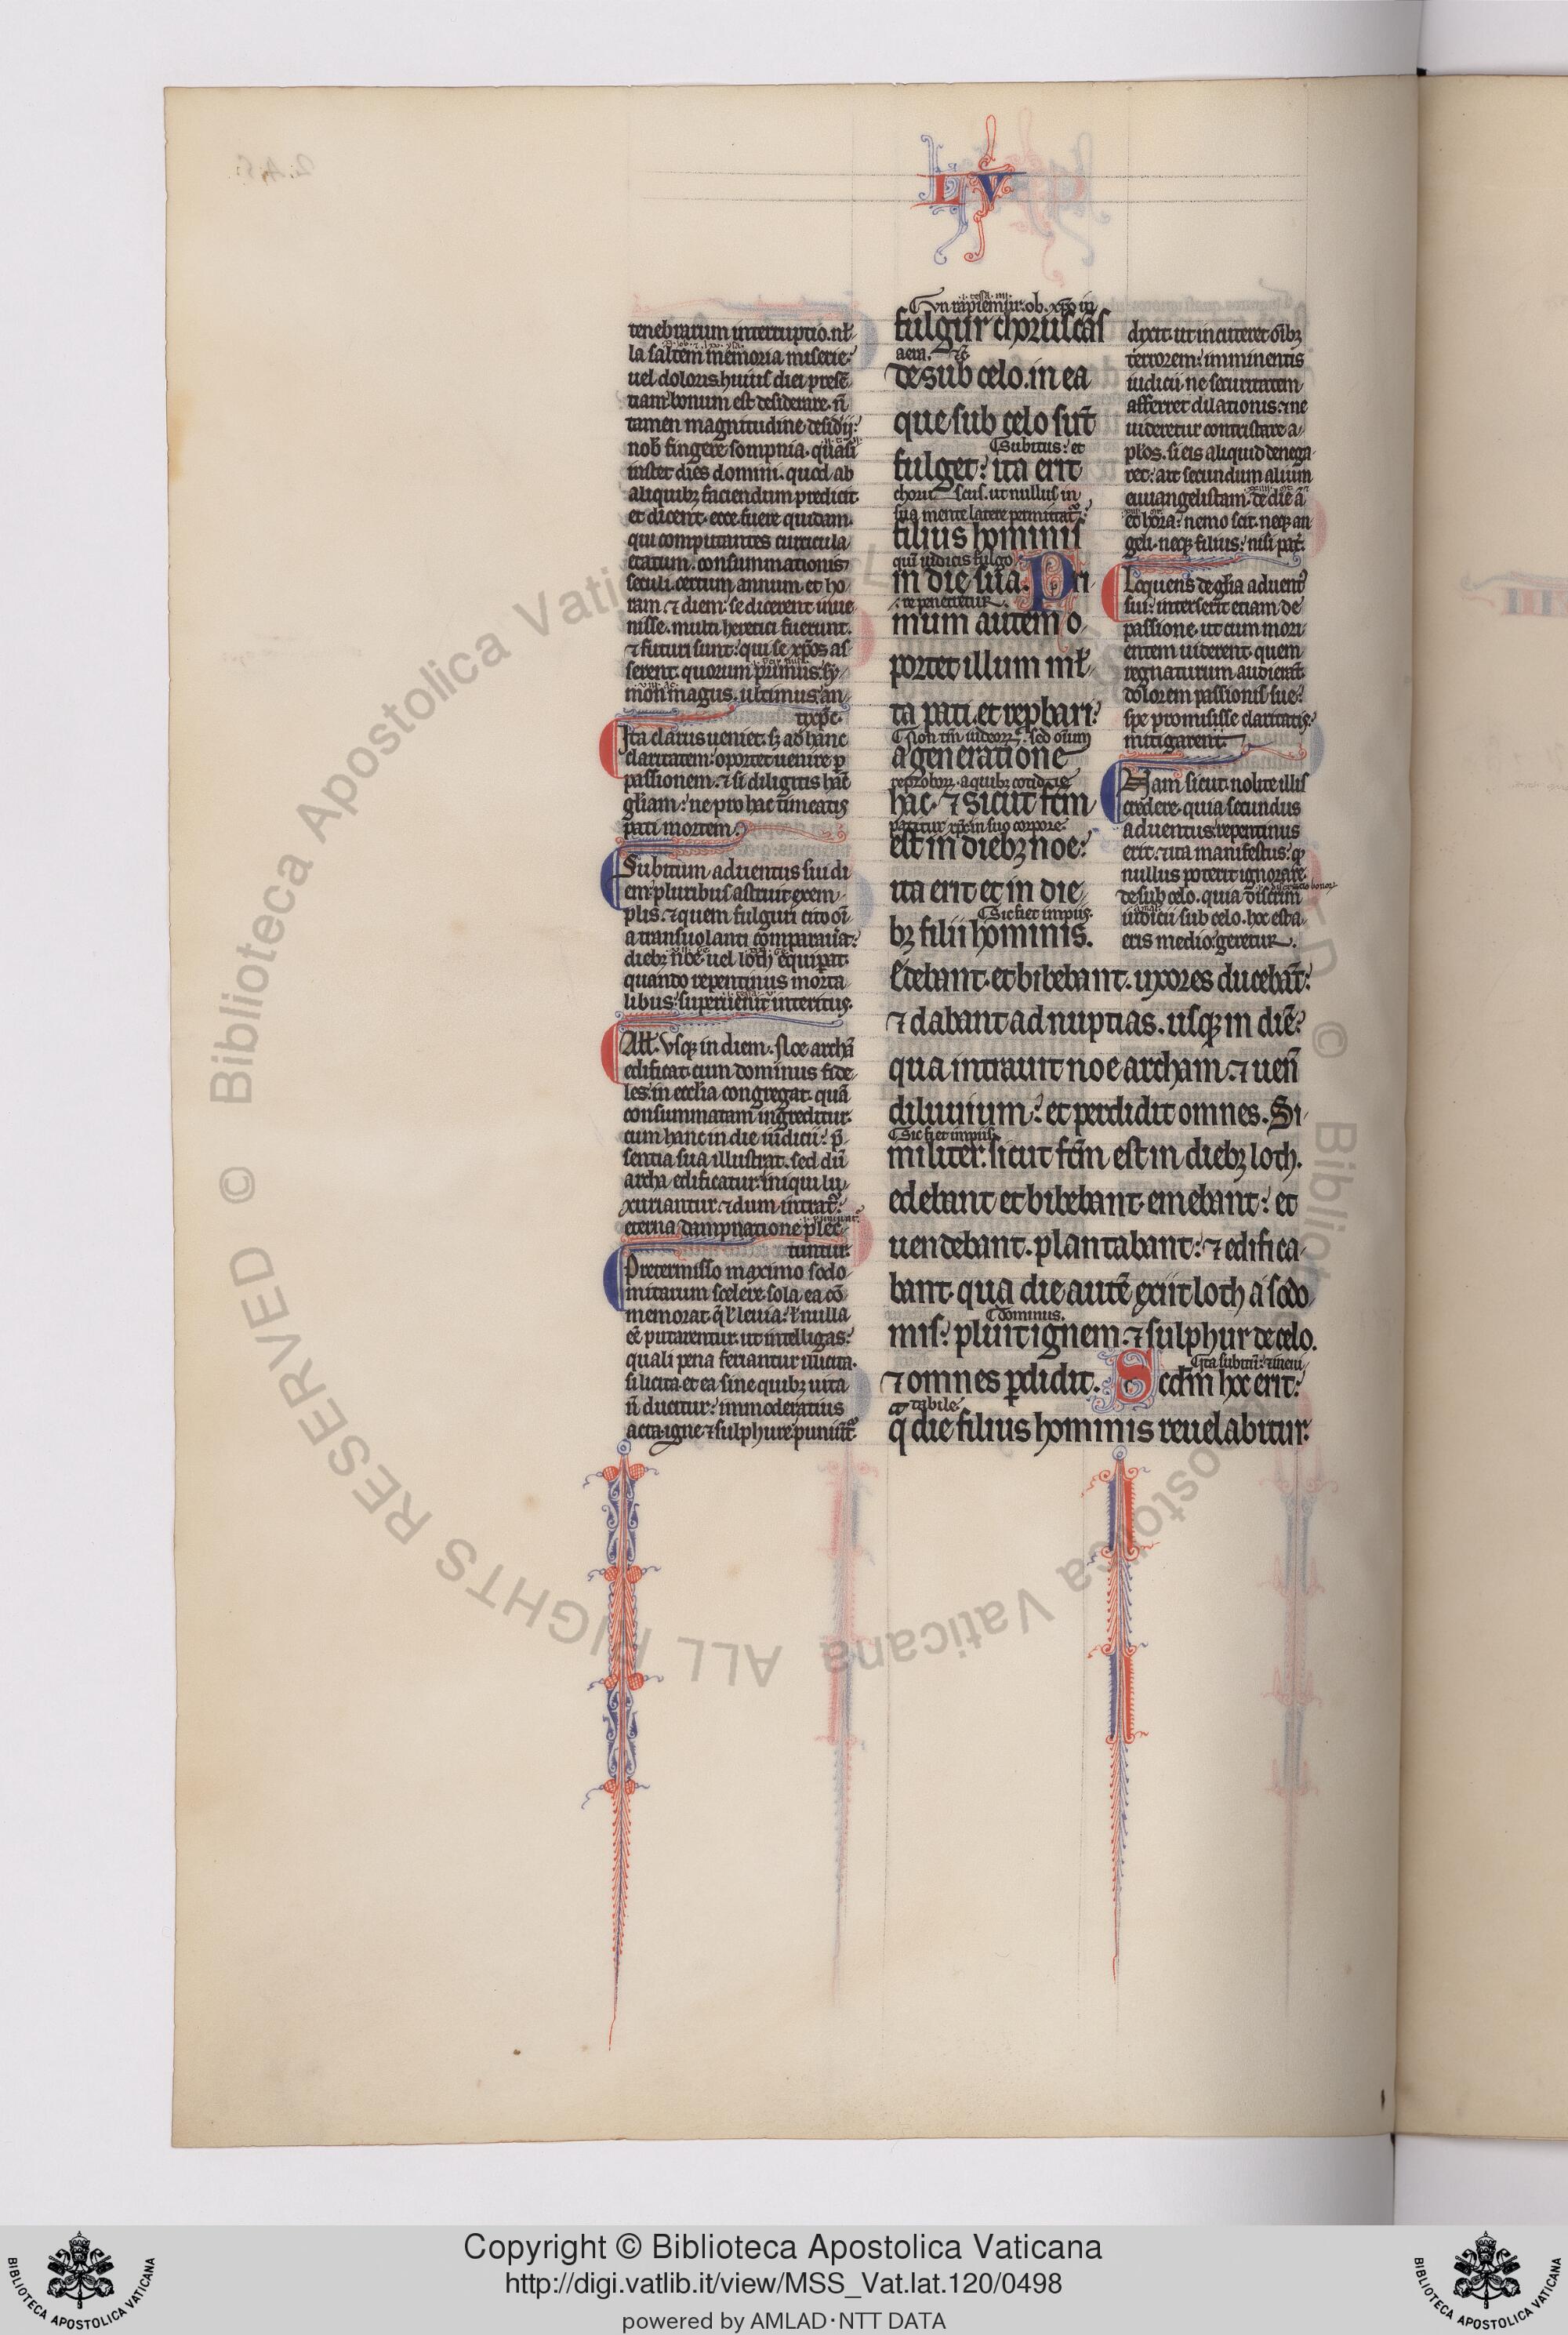 L V
tenebrarum interruptio. nł
la saltem memoria miserie:
uel doloris. huius diei presē
tiam bonum est desiderare. ñ
tamen magnitudine desidij:
nob fingere sompnia. quasi
instet dies domini. quod ab
aliquibꝫ faciendum predicit
et dicent. ecce fuere quidam.
qui computantes curricula
etatum. consummationis
seculi. certum annum. et ho
ram ⁊ diem: se dicerent inue
nisse. multi heretici fuerunt.
⁊ futuri sunt: qui se xp̄os as
serent. quorum primus: sy
mon magus. ultimus: an
tixp̄c.
Ita clarus ueniet. sꝫ ad hanc
claritatem: oportet uenire p
passionem. ⁊ si diligitis hāc
gl̄iam: ne pro hac timeatis
pati mortem.
Subitum aduentus sui di
em: pluribus astruit exem
plis. ⁊ quem fulguri cito oī
a transuolanti comparauāt:
diebꝫ noe uel loth equiparat.
quando repentinus morta
libus: superuenit interitus.
All. vsqꝫ in diem. Noe archā
edificat. cum dominus fide
les: in eccl̄ia congregat. quā
consummatam ingreditur.
cum hanc in die iudicii: p̄
sentia sua illustrat. sed dū
archa edificatur: iniqui lu
xuriantur. ⁊ dum intrat:
eterna dampnatione plec
tuntur.
Pretermisso maximo sodo
mitarum scelere. sola ea cō
memorat. q̄ ł leuia: ł nulla
eē putarentur. ut intelligas:
quali pena feriantur illicita.
si licita. et ea sine quibꝫ uita
ñ ducitur: immoderatius
acta. igne ⁊ sulphure puniūt
fulgur choruscās
de sub celo. in ea
que sub celo sūt
Subitus: et
fulget: ita erit
sua mente latere permittat
filius hominis
in die sua. Pri
mum autem o
portet illum mł
ta pati. et rep̄bari:
a generatione
hac. ⁊ sicut fc̄m
patitur xp̄c in suo corpore
est in diebꝫ noe:
ita erit et in die
Sic fiet impiis.
bꝫ filii hominis.
edebant. et bibebant. uxores ducebāt:
⁊ dabant ad nuptias. usqꝫ in diē:
qua intrauit noe archam. ⁊ ueñ
diluuium: et perdidit omnes. Si
Sic fiet impiis.
militer. sicut fc̄m est in diebꝫ loth.
edebant et bibebant. emebant: et
uendebant. plantabant: ⁊ edifica
bant. qua die autē exiit loth a sodo
dominus.
mis: pluit ignem. ⁊ sulphur de celo.
⁊ omnes ꝑdidit. Scd̄m hoc erit:
q̄ die filius hominis reuelabitur.
dixit. ut incuteret oībꝫ
terrorem: imminentis
iudicii. ne securitatem
afferret dilationis: ⁊ ne
uideretur contristare a
plos. si eis aliquid denega
ret: ait secundum alium
euuangelistam. de die ā
et hora: nemo scit. neqꝫ an
geli. neqꝫ filius: nisi pat̄.
Loquens de gl̄ia aduent᷒
sui: interserit etiam de
passione. ut cum mori
entem uiderent quem
regnaturum audierāt.
dolorem passionis sue:
spe promisse claritatis:
mitigarent.
Nam sicut. nolite illis
credere. quia secundus
aduentus: repentinus
erit. ⁊ ita manifestus: qꝫ
nullus poterit ignorare.
de sub celo. quia discrim
iudicii sub celo. hoc est a
eris medio: geretur.
Copyright © Biblioteca Apostolica Vaticana
http://digi.vatlib.it/view/MSS_Vat.lat.120/0498
powered by AMLAD·NTT DATA
BIBLIOTECA APOSTOLICA VATICANA
BIBLIOTECA APOSTOLICA VATICANA
© Biblioteca Apostolica Vaticana ALL RIGHTS RESERVED